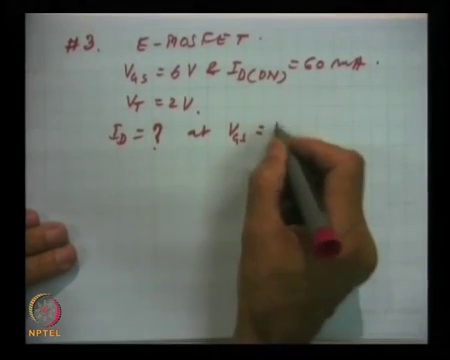 #3. E-MOSFET.
V_GS = 6 V & I_D(ON) = 60 mA.
V_T = 2V.
I_D = ? at V_GS =
NPTEL